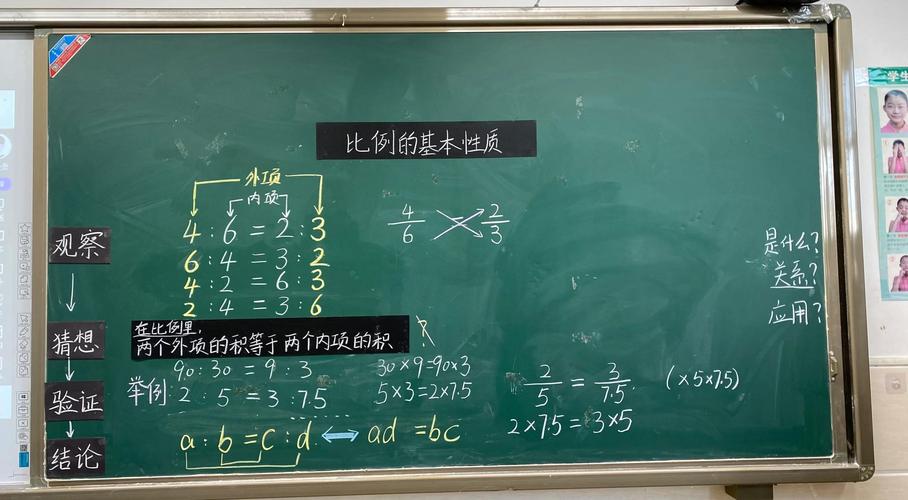 比例的基本性质
外项
内项
4 : 6 = 2 : 3
6 : 4 = 3 : 2
4 : 2 = 6 : 3
2 : 4 = 3 : 6
4/6 = 2/3
观察
猜想
验证
结论
在比例里，
两个外项的积等于两个内项的积
?
90 : 30 = 9 : 3
30×9=90×3
举例: 2 : 5 = 3 : 7.5
5×3=2×7.5
a : b = c : d ⟺ ad = bc
2/5 = 3/7.5 (×5×7.5)
2×7.5=3×5
是什么?
关系?
应用?
学生